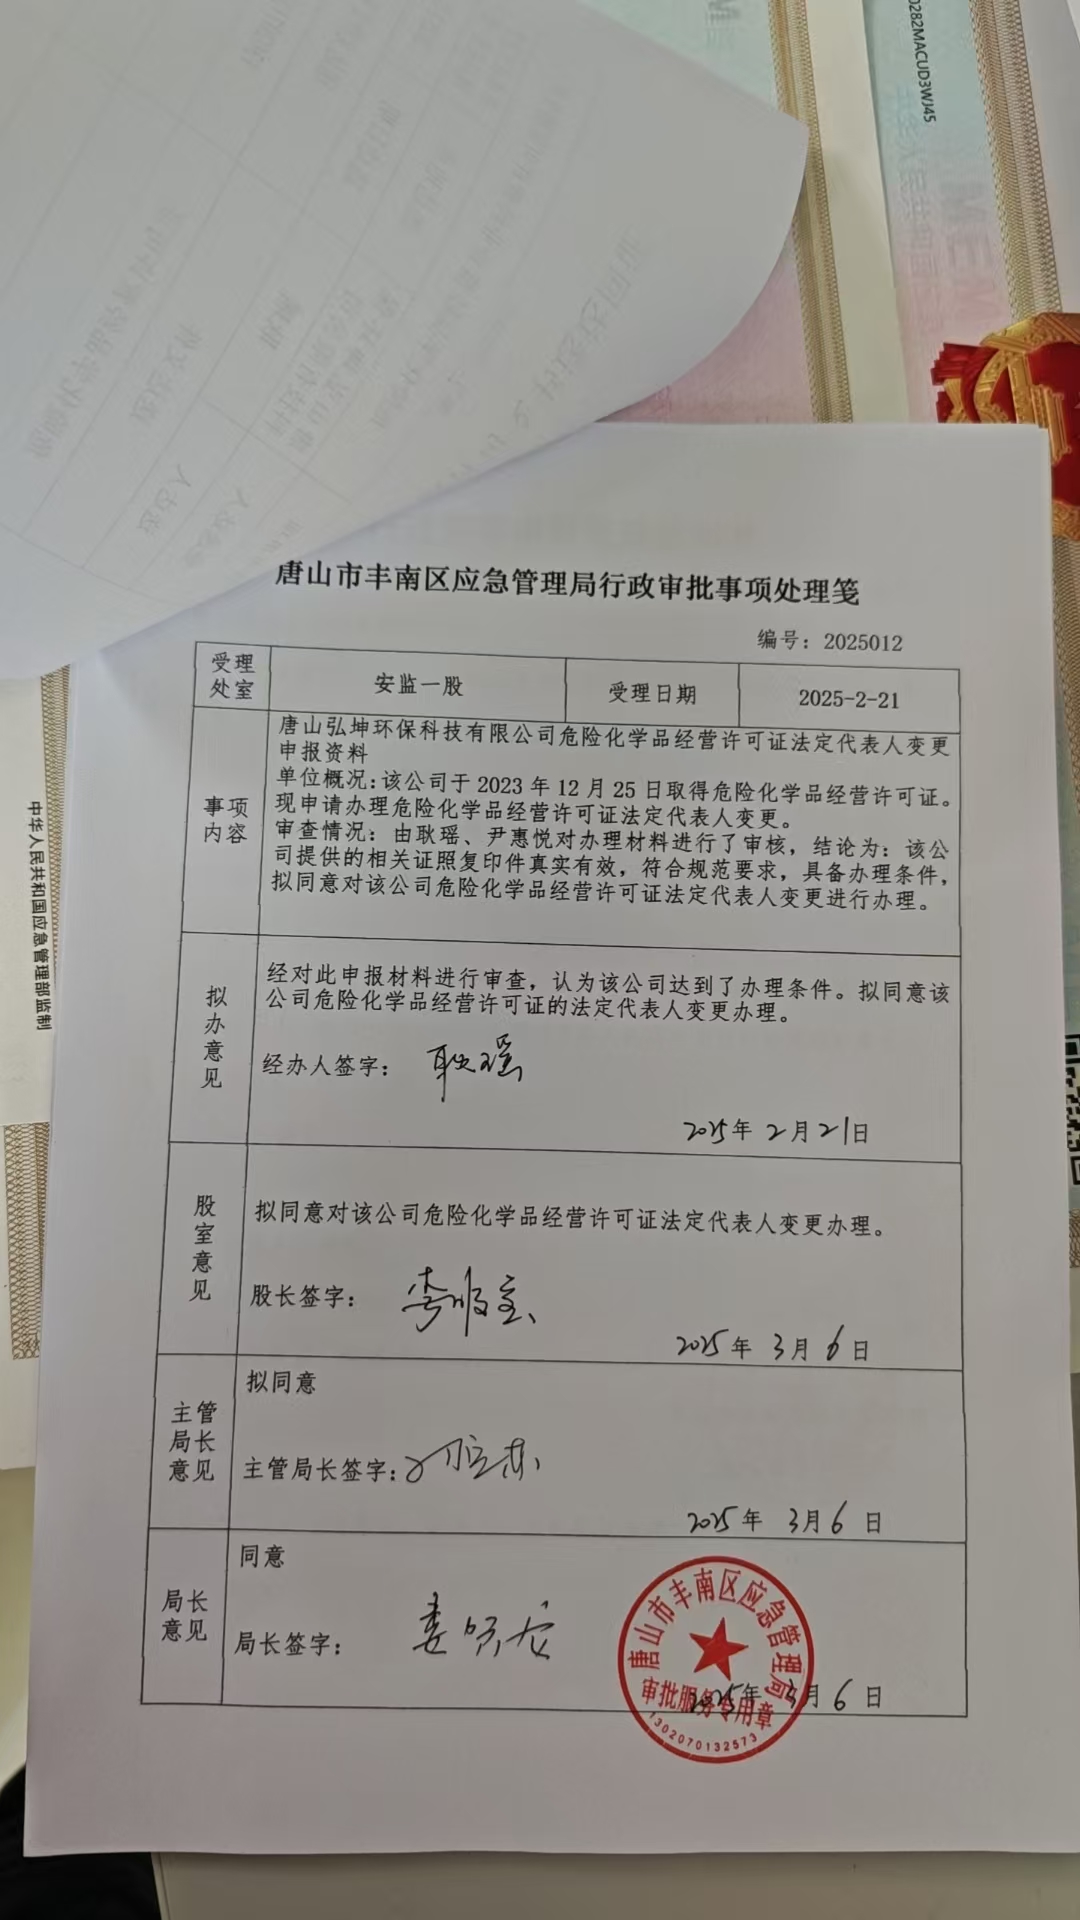 0282MACUD3WJ45
中华人民共和国应急管理部监制
唐山市丰南区应急管理局行政审批事项处理笺
编号：2025012
受理处室
安监一股
受理日期
2025-2-21
事项内容
唐山弘坤环保科技有限公司危险化学品经营许可证法定代表人变更
申报资料
单位概况：该公司于 2023 年 12 月 25 日取得危险化学品经营许可证。
现申请办理危险化学品经营许可证法定代表人变更。
审查情况：由耿瑶、尹惠悦对办理材料进行了审核，结论为：该公
司提供的相关证照复印件真实有效，符合规范要求，具备办理条件，
拟同意对该公司危险化学品经营许可证法定代表人变更进行办理。
拟办意见
经对此申报材料进行审查，认为该公司达到了办理条件。拟同意该
公司危险化学品经营许可证的法定代表人变更办理。
经办人签字：耿瑶
2025年 2月 21日
股室意见
拟同意对该公司危险化学品经营许可证法定代表人变更办理。
股长签字：
2025年 3月 6日
主管局长意见
拟同意
主管局长签字：
2025年 3月 6日
局长意见
同意
局长签字：
2025年 3月 6日
唐山市丰南区应急管理局
审批服务专用章
1302070132573